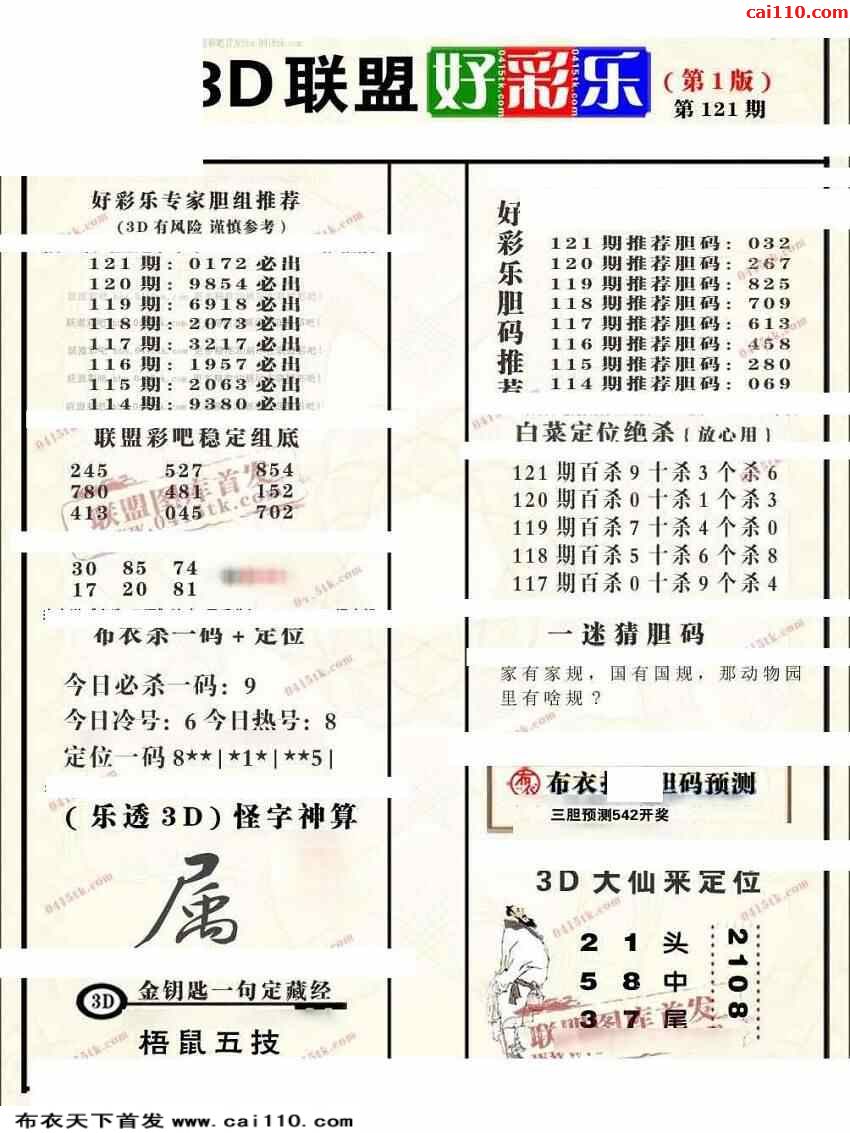 cai110.com
3D联盟好彩乐
0415tk.com 0415tk.com 0415tk.com
(第1版)
第121期
好彩乐专家胆组推荐
(3D有风险 谨慎参考)
121期: 0172必出
120期: 9854必出
119期: 6918必出
118期: 2073必出
117期: 3217必出
116期: 1957必出
115期: 2063必出
114期: 9380必出
联盟彩吧稳定组底
245 527 854
780 481 152
413 045 702
联盟图库首发
www.0415tk.com
30 85 74
17 20 81
布衣杀一码+定位
今日必杀一码: 9
今日冷号: 6 今日热号: 8
定位一码 8**|*1*|**5|
(乐透3D)怪字神算
属
3D 金钥匙一句定藏经
梧鼠五技
好彩乐胆码推荐
121期推荐胆码: 032
120期推荐胆码: 267
119期推荐胆码: 825
118期推荐胆码: 709
117期推荐胆码: 613
116期推荐胆码: 458
115期推荐胆码: 280
114期推荐胆码: 069
白菜定位绝杀(放心用)
121期百杀9十杀3个杀6
120期百杀0十杀1个杀3
119期百杀7十杀4个杀0
118期百杀5十杀6个杀8
117期百杀0十杀9个杀4
一迷猜胆码
家有家规，国有国规，那动物园
里有啥规？
布衣 胆码预测
三胆预测542开奖
3D大仙来定位
2 1 头
5 8 中
3 7 尾
2108
联盟图库首发
布衣天下首发 www.cai110.com